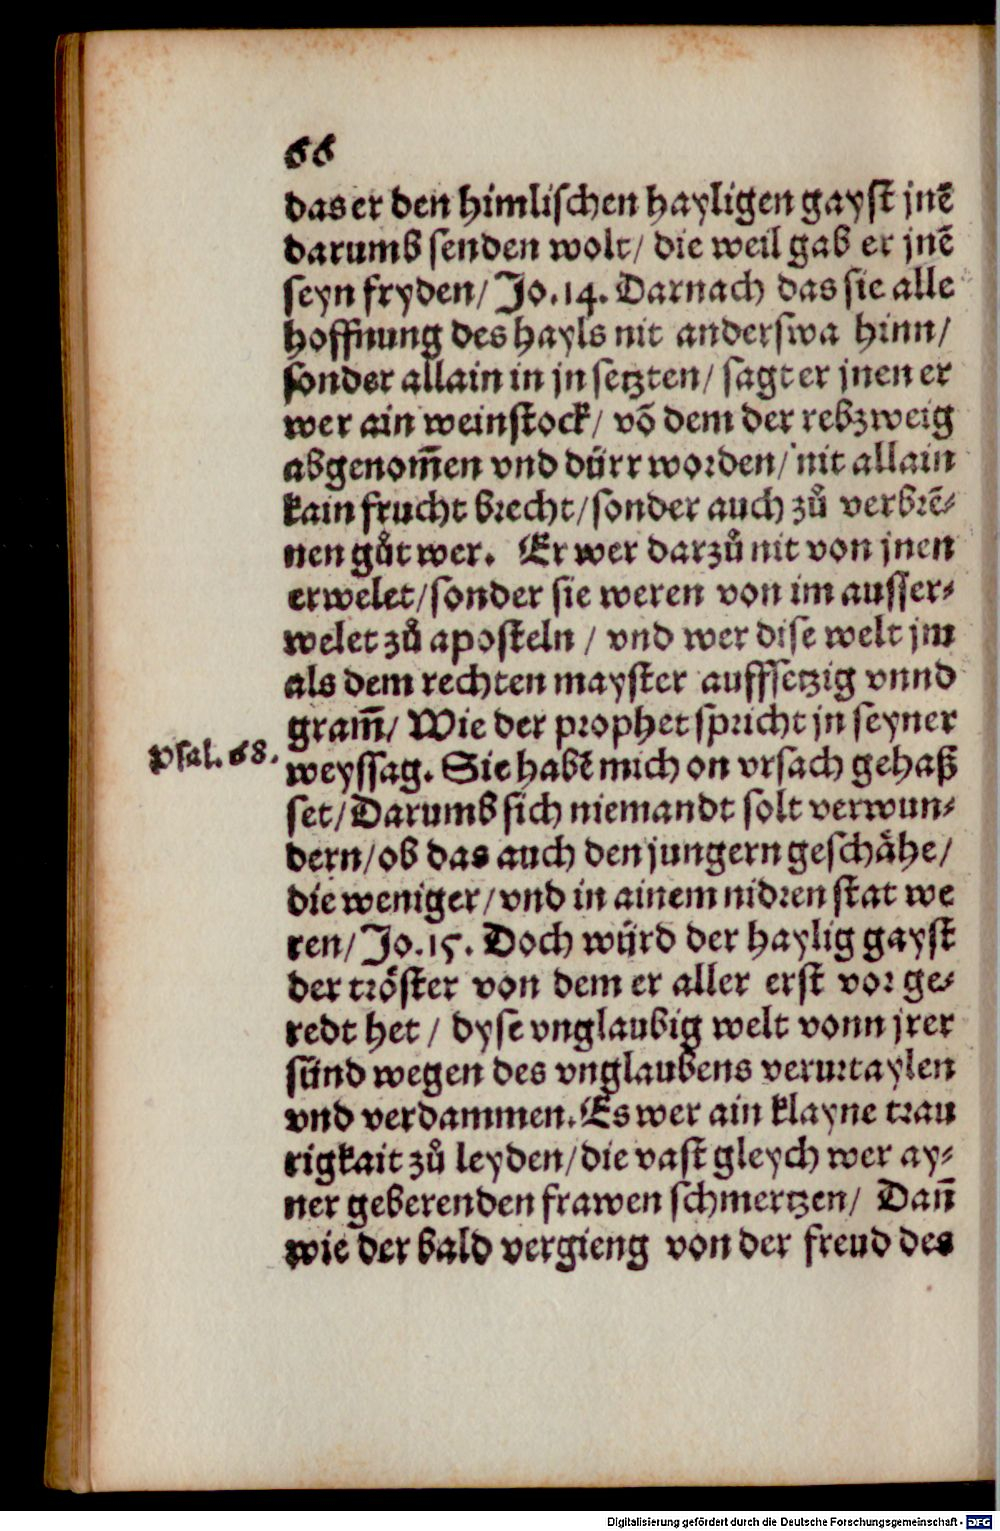 66
das er den himlischen hayligen gayst jnẽ
darumb senden wolt/ die weil gab er jnẽ
seyn fryden/ Jo.14. Darnach das sie alle
hoffnung des hayls nit anderswa hinn/
sonder allain in jn setzten/ sagt er jnen er
wer ain weinstock/ võ dem der rebzweig
abgenom̃en vnd dürr worden/ nit allain
kain frucht brecht/ sonder auch zů verbrẽ-
nen gůt wer. Er wer darzů nit von jnen
erwelet/ sonder sie weren von im ausser-
welet zů aposteln / vnd wer dise welt jm
als dem rechten mayster auffsetzig vnnd
gram̃/ Wie der prophet spricht jn seyner
Psal. 68.
weyssag. Sie habẽ mich on vrsach gehaß
set/ Darumb sich niemandt solt verwun-
dern/ ob das auch den jungern geschähe/
die weniger/ vnd in ainem nidren stat we
ren/ Jo.15. Doch würd der haylig gayst
der tröster von dem er aller erst vor ge-
redt het / dyse vnglaubig welt vonn jrer
sünd wegen des vnglaubens verurtaylen
vnd verdammen. Es wer ain klayne trau
rigkait zů leyden/ die vast gleych wer ay-
ner geberenden frawen schmertzen/ Dañ
wie der bald vergieng von der freud des
Digitalisierung gefördert durch die Deutsche Forschungsgemeinschaft - DFG